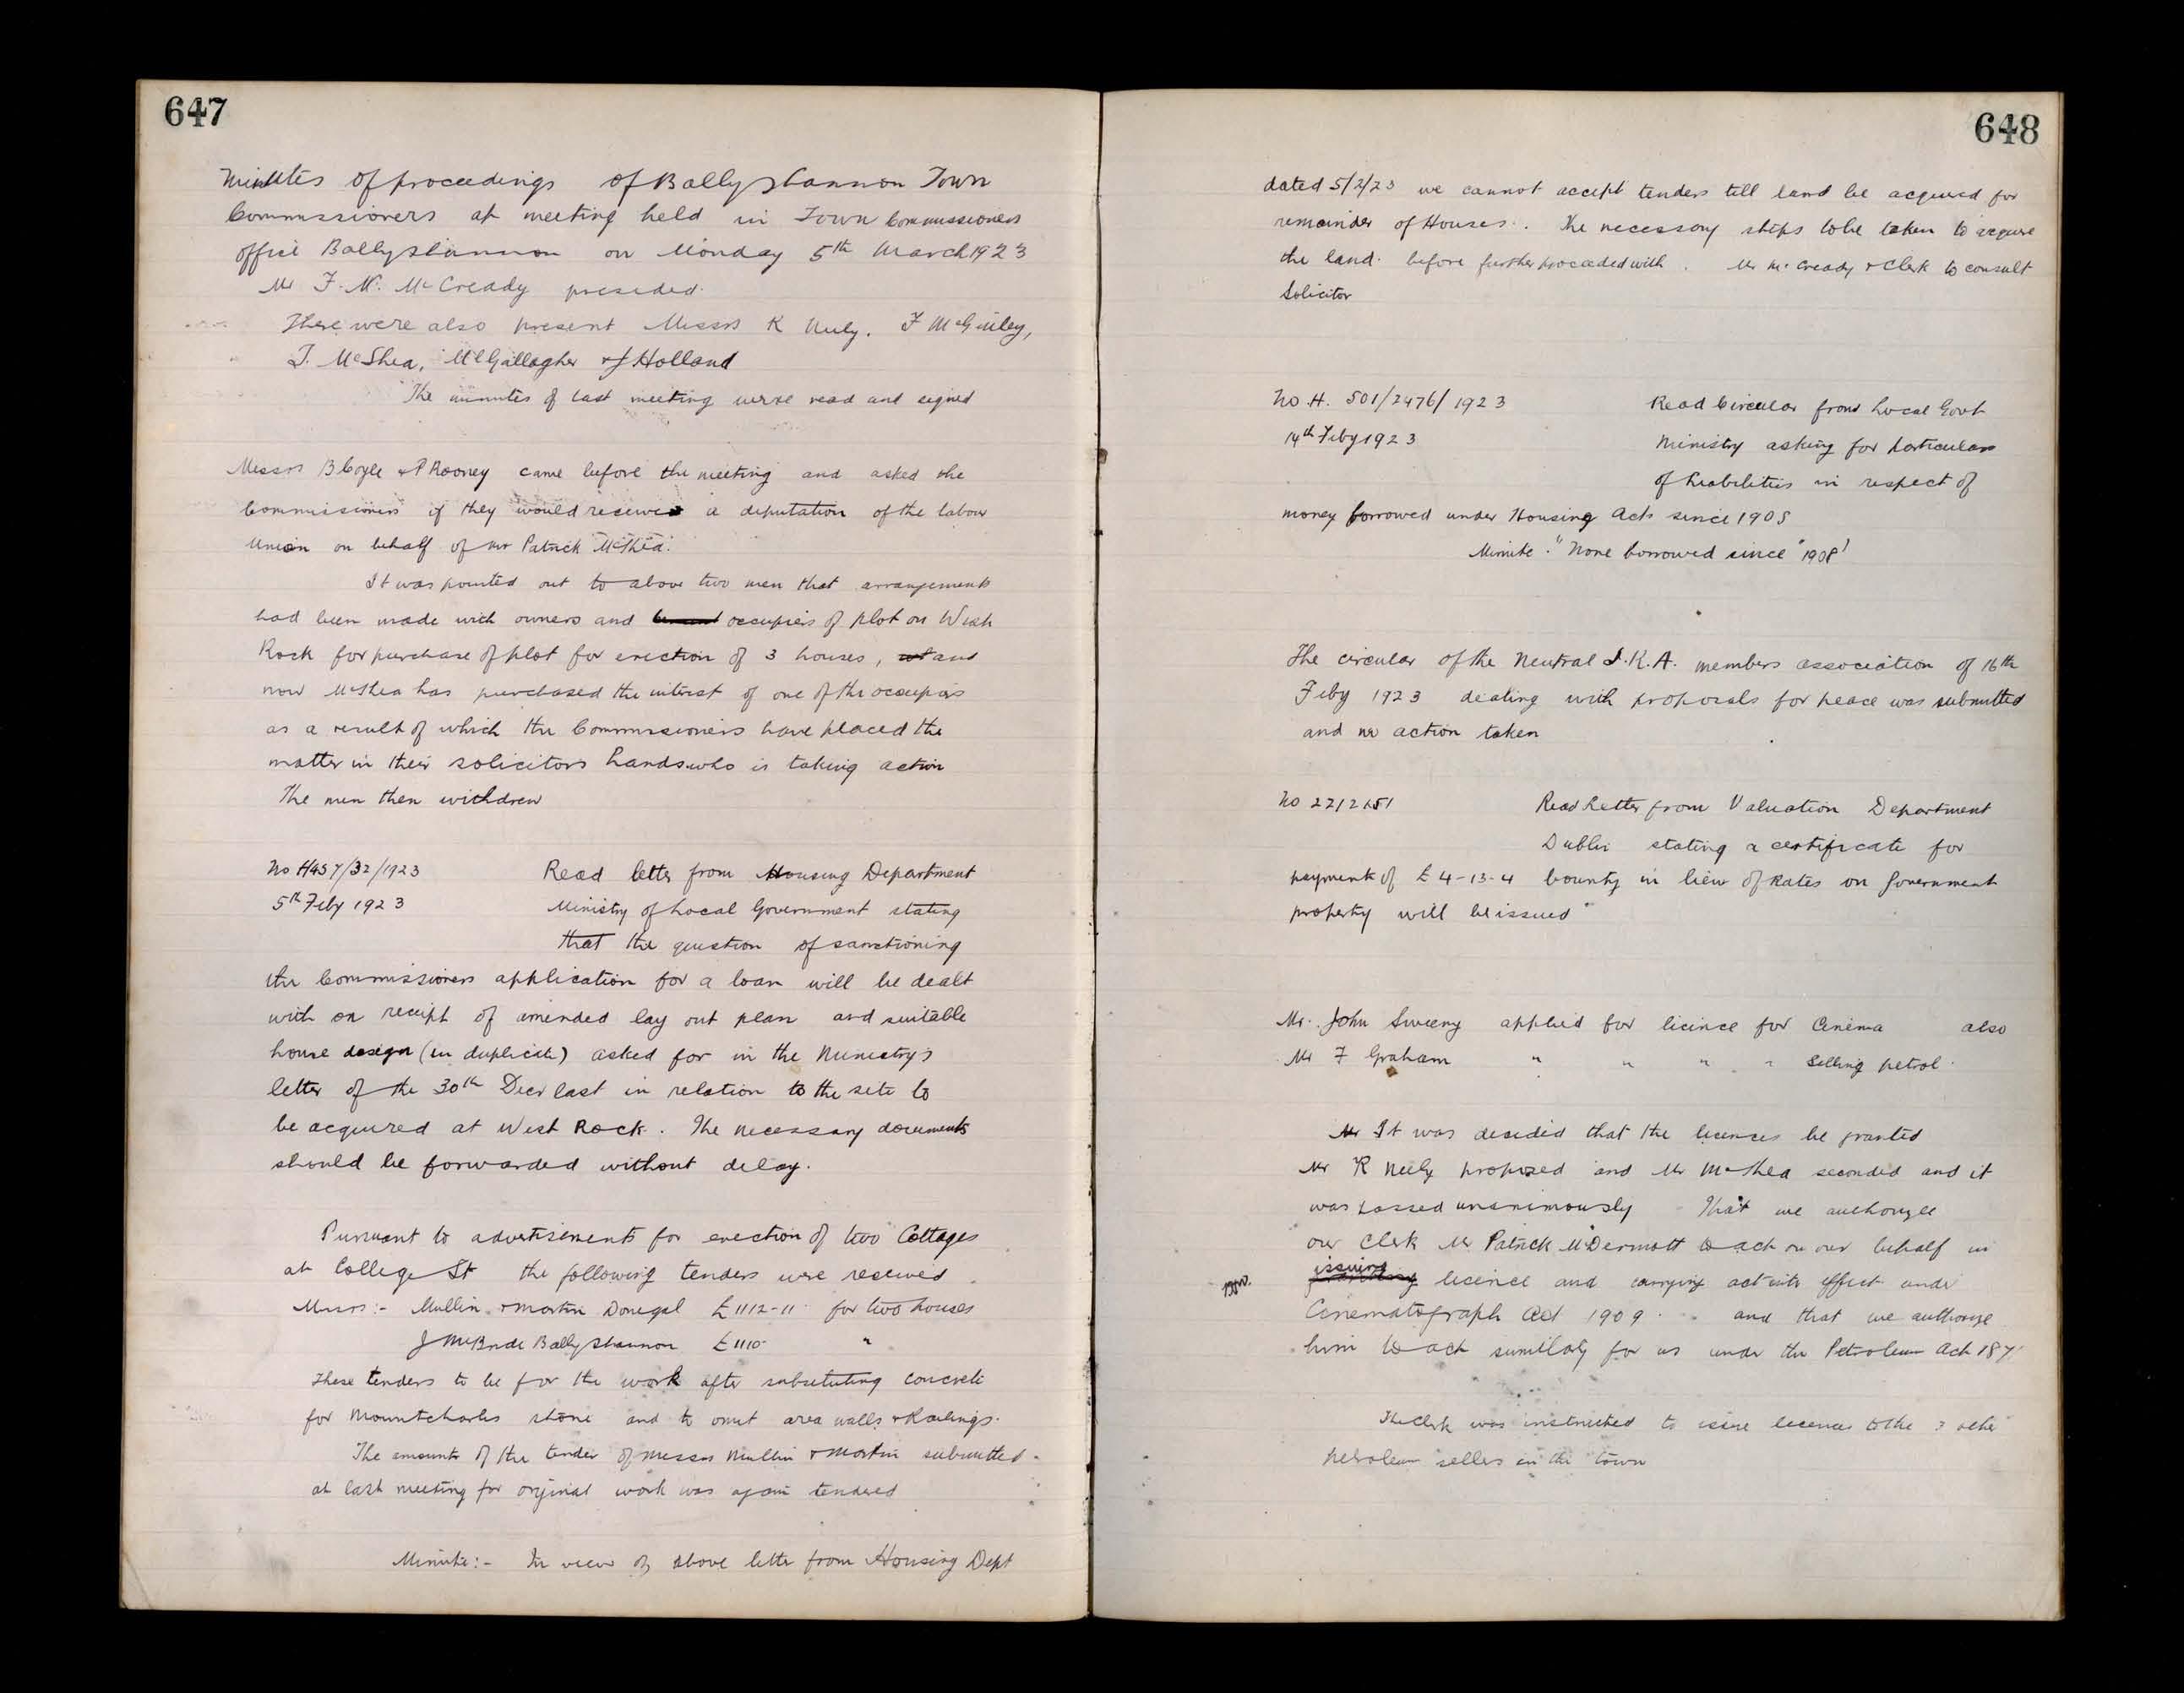 647
Minutes of proceedings of Ballyshannon Town
Commissioners at meeting held in Town Commissioners
office Ballyshannon on Monday 5th March 1923
Mr F. N. McCready presided.
There were also present Messrs R Neely. F McGinley,
T. McShea, Ml Gallagher & J Holland
The minutes of last meeting were read and signed
Messrs B Coyle & P Rooney came before the meeting and asked the
Commissioners if they would receive a deputation of the labour
Union on behalf of Mr Patrick McShea.
It was pointed out to above two men that arrangements
had been made with owners and occupiers of plot on West
Rock for purchase of plot for erection of 3 houses, and
now McShea has purchased the interest of one of the occupiers
as a result of which the Commissioners have placed the
matter in their solicitors hands who is taking action
The men then withdrew
No H457/32/1923 Read letter from Housing Department
5th Feby 1923 Ministry of Local Government stating
that the question of sanctioning
the Commissioners application for a loan will be dealt
with on receipt of amended lay out plan and suitable
house design (in duplicate) asked for in the Ministry's
letter of the 30th Decr last in relation to the site to
be acquired at West Rock. The necessary documents
should be forwarded without delay.
Pursuant to advertisements for erection of two Cottages
at College St the following tenders were received
Messrs:- Mullin & Martin Donegal £1112-11 for two houses
J McBride Ballyshannon £1110- "
These tenders to be for the work after substituting concrete
for Mountcharles stone and to omit area walls & Railings.
The amounts of the tender of Messrs Mullin & Martin submitted
at last meeting for original work was again tendered
Minute:- In view of above letter from Housing Dept
648
dated 5/2/23 we cannot accept tenders till land be acquired for
remainder of Houses. The necessary steps to be taken to acquire
the land before further proceeded with. Mr McCready & Clerk to consult
Solicitor
No H. 501/2476/1923 Read Circular from Local Govt
14th Feby 1923 Ministry asking for particulars
of Liabilities in respect of
money borrowed under Housing Acts since 1908
Minute. "None borrowed since 1908"
The circular of the Neutral I.R.A. members association of 16th
Feby 1923 dealing with proposals for peace was submitted
and no action taken
No Read Letter from Valuation Department
Dublin stating a certificate for
payment of £4-13-4 bounty in lieu of Rates on Government
property will be issued
Mr. John Sweeny applied for licince for Cinema also
Mr F Graham " " " " Selling petrol.
It was decided that the licences be granted
Mr R Neely proposed and Mr McShea seconded and it
was passed unanimously That we authorize
our Clerk Mr Patrick McDermott to act on our behalf in
issuing licence and carrying act into effect under
Cinematograph Act 1909 and that we authorize
him to act similarly for us under the Petroleum Act 187
The Clerk was instructed to issue licences to the 3 other
petroleum sellers in the town